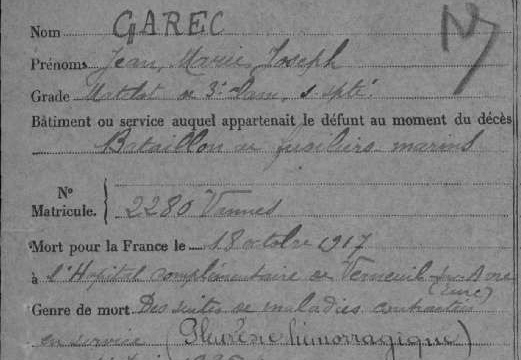 Nom GAREC
Prénoms Jean, Marie, Joseph
Grade Matelot de 3e
Bâtiment ou service auquel appartenait le défunt au moment du décès
Bataillon de fusiliers-marins
N°
Matricule. 2280 Vannes
Mort pour la France le 18 octobre 1917
à l'Hopital complémentaire de Verneuil-sur-Avre
(Eure)
Genre de mort Des suites de maladies contractées
en service (Pleurésie hémorragique)